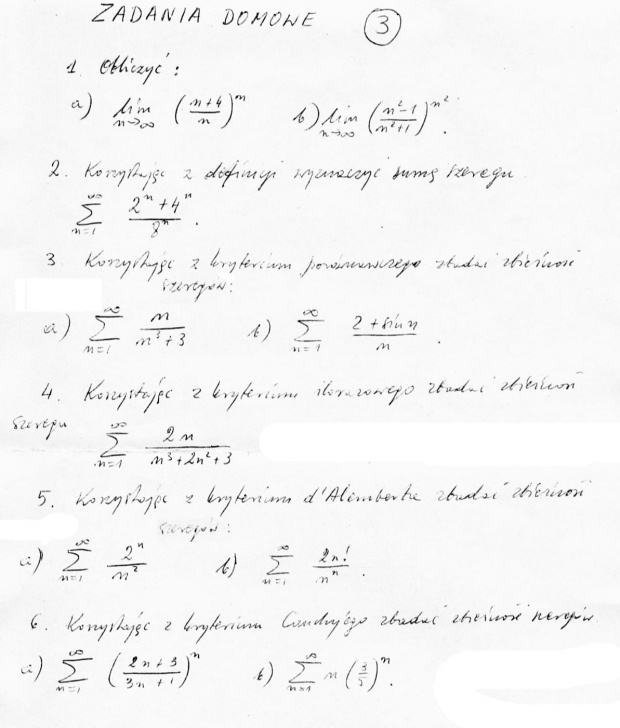 ZADANIA DOMOWE 3
1. Obliczyć:
a) lim n→∞ ((n+4)/n)^n b) lim n→∞ ((n²-1)/(n²+1))^n².
2. Korzystając z definicji wyznaczyć sumę szeregu
∑ n=1 ∞ (2^n + 4^n)/8^n.
3. Korzystając z kryterium porównawczego zbadać zbieżność
szeregów:
a) ∑ n=1 ∞ n/(n³+3) b) ∑ n=1 ∞ (2+sin n)/n.
4. Korzystając z kryterium ilorazowego zbadać zbieżność
szeregu
∑ n=1 ∞ 2n/(n³+2n²+3)
5. Korzystając z kryterium d'Alemberta zbadać zbieżność
szeregów:
a) ∑ n=1 ∞ 2^n/n² b) ∑ n=1 ∞ 2n!/n^n.
6. Korzystając z kryterium Cauchy'ego zbadać zbieżność szeregów
a) ∑ n=1 ∞ ((2n+3)/(3n+1))^n b) ∑ n=1 ∞ n(3/5)^n.